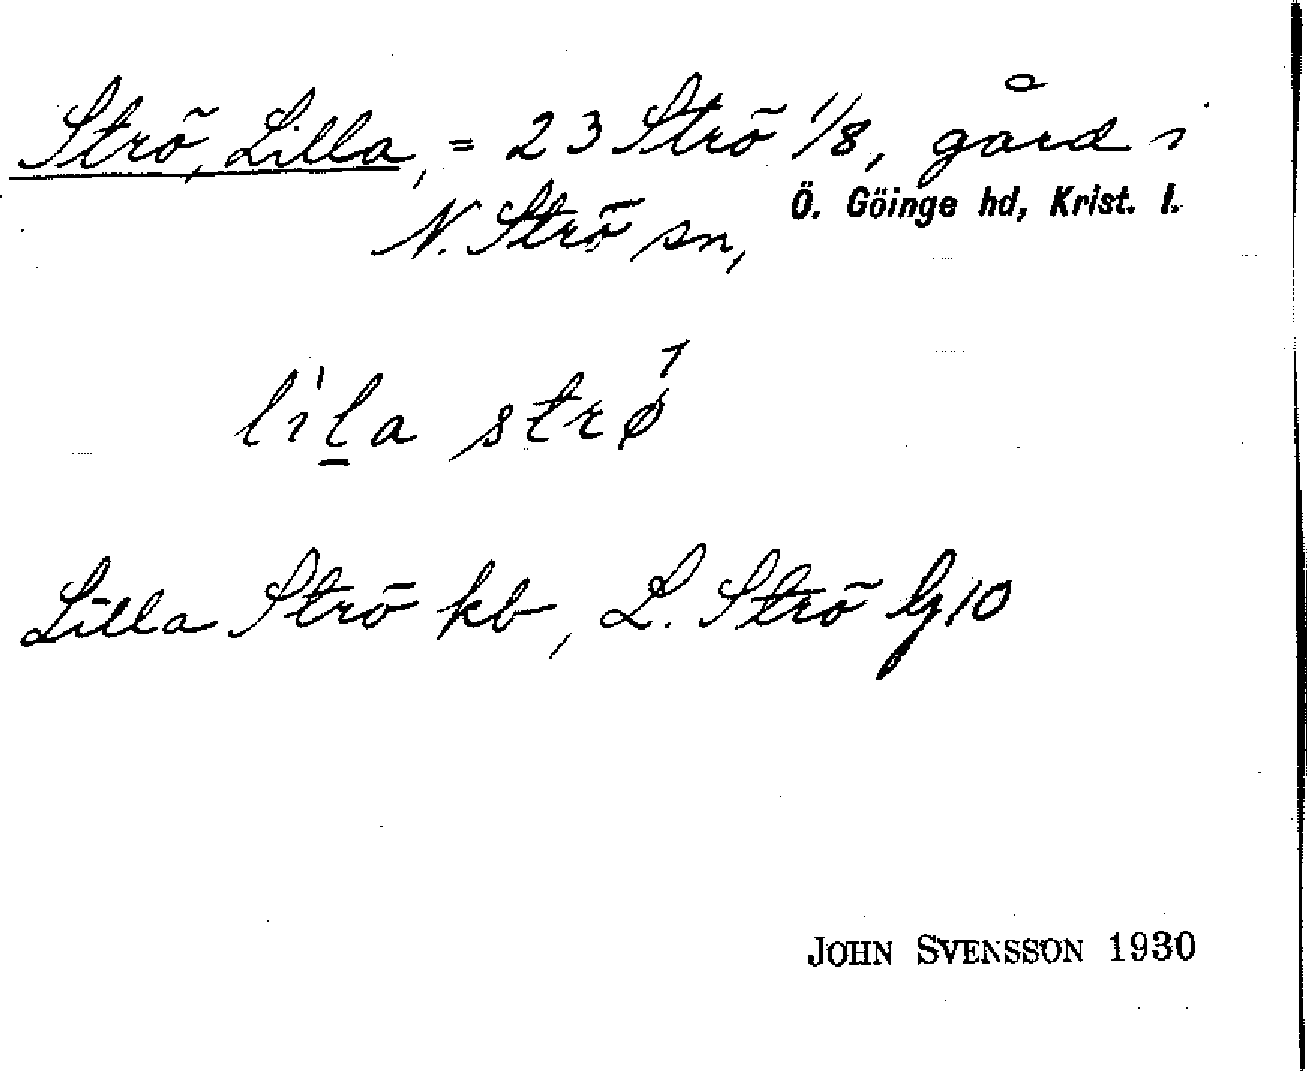 Strö, Lilla, = 23 Strö 1/8, gård i
N. Strö sn, Ö. Göinge hd, Krist. l.
li'l̲a strǿ
Lilla Strö kb, L. Strö Gg10
JOHN SVENSSON 1930